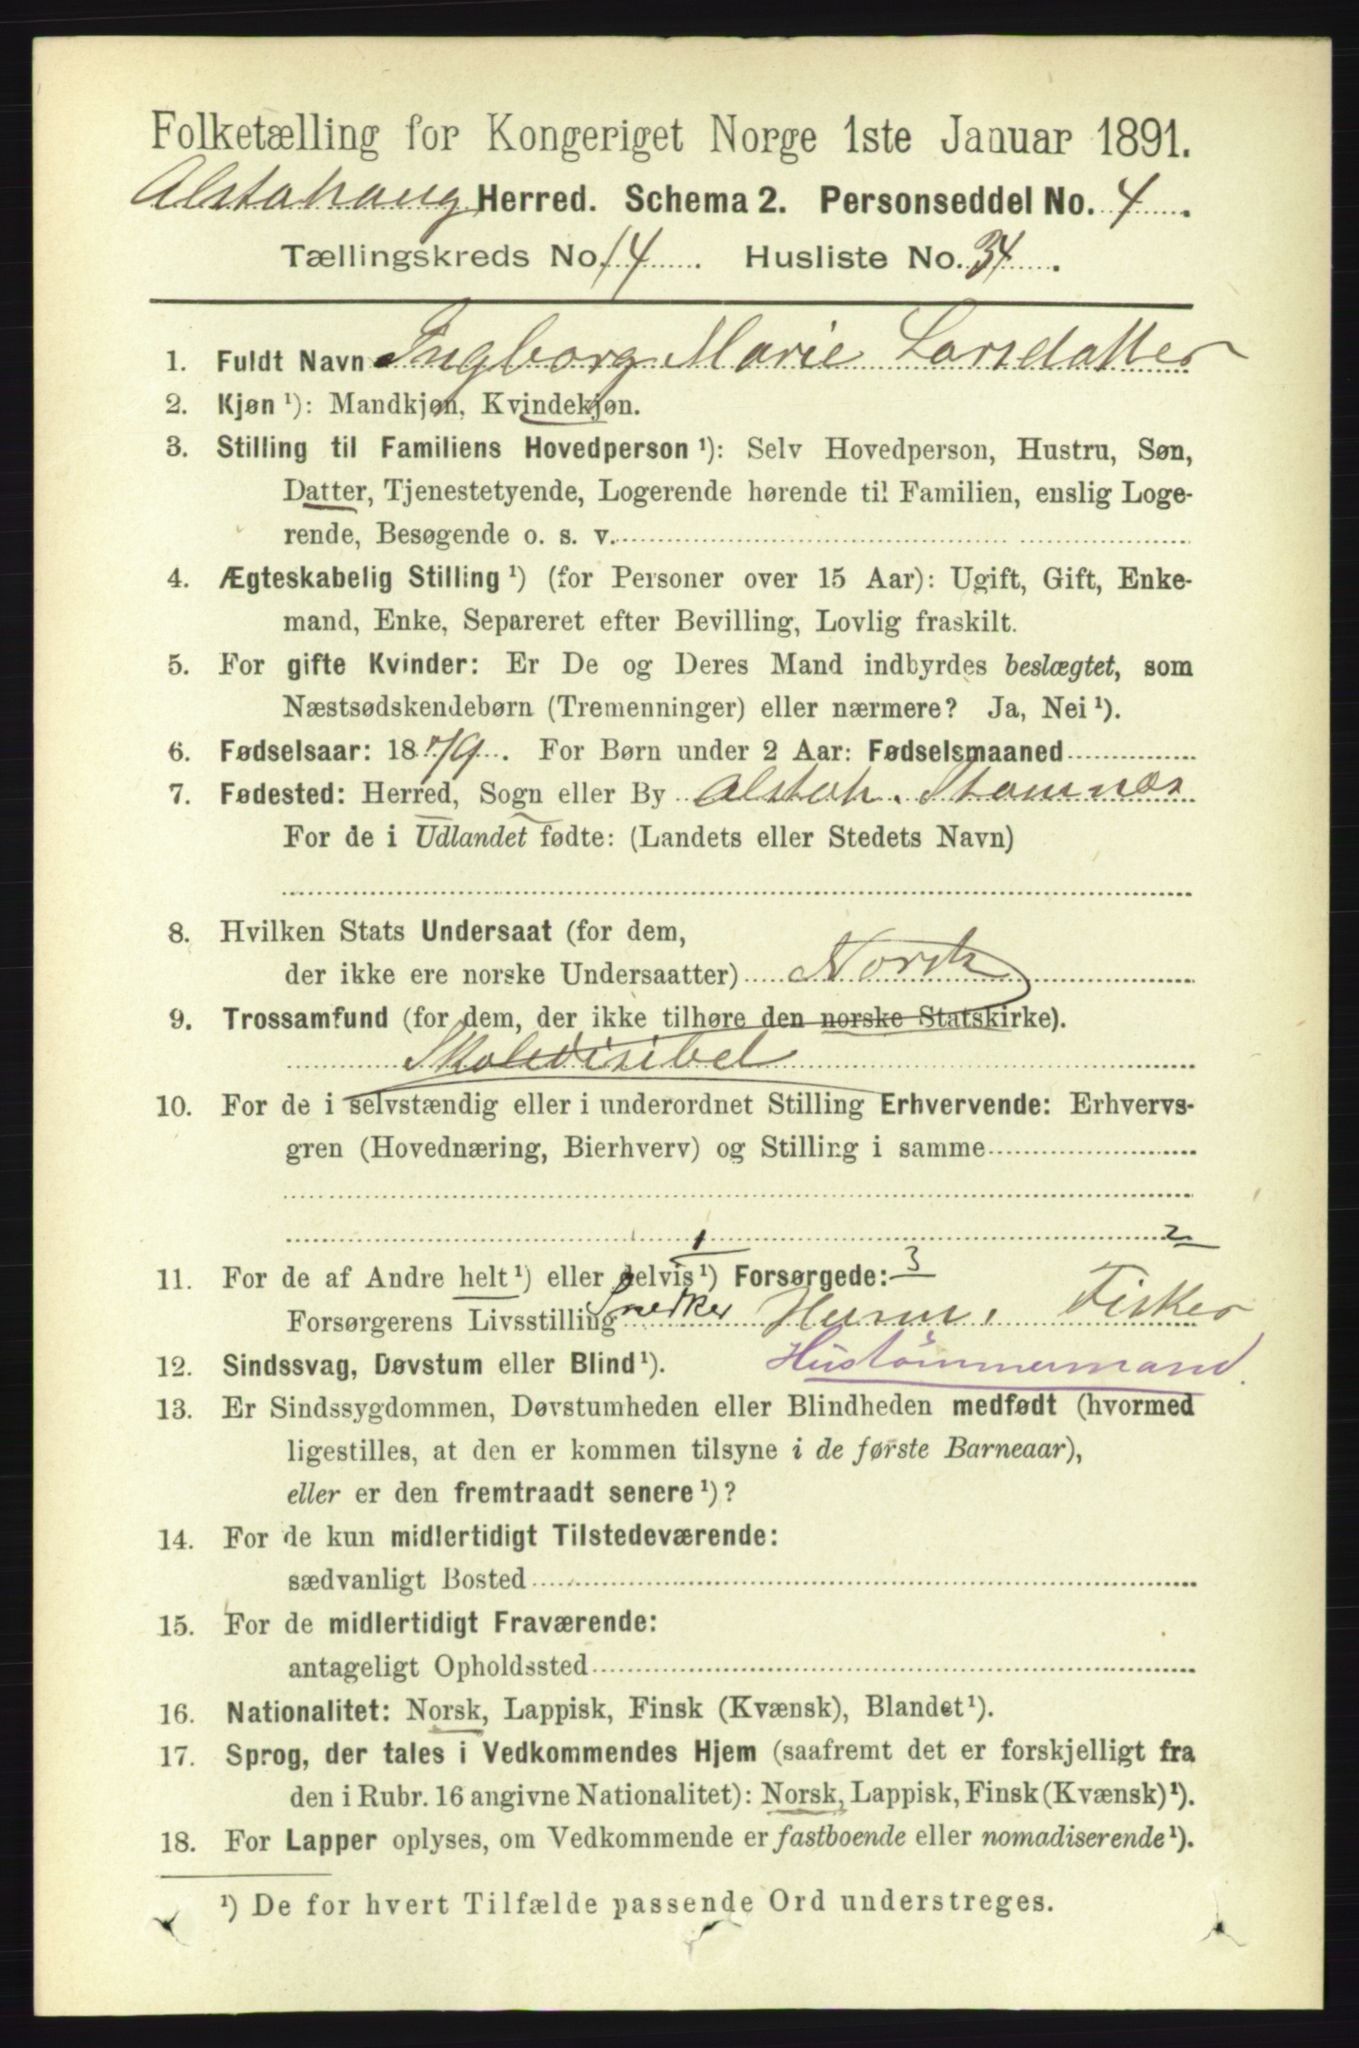 Folketælling for Kongeriget Norge 1ste Januar 1891.
Alstahaug Herred. Schema 2. Personseddel No. 4.
Tællingskreds No. 14. Husliste No. 34.
1. Fuldt Navn Ingborg Marie Larsdatter
2. Kjøn ¹): Mandkjøn, Kvindekjøn.
3. Stilling til Familiens Hovedperson ¹): Selv Hovedperson, Hustru, Søn,
Datter, Tjenestetyende, Logerende hørende til Familien, enslig Loge-
rende, Besøgende o. s. v.
4. Ægteskabelig Stilling ¹) (for Personer over 15 Aar): Ugift, Gift, Enke-
mand, Enke, Separeret efter Bevilling, Lovlig fraskilt.
5. For gifte Kvinder: Er De og Deres Mand indbyrdes beslægtet, som
Næstsødskendebørn (Tremenninger) eller nærmere? Ja, Nei ¹).
6. Fødselsaar: 1879. For Børn under 2 Aar: Fødselsmaaned
7. Fødested: Herred, Sogn eller By Alstah. Stamnæs
For de i Udlandet fødte: (Landets eller Stedets Navn)
8. Hvilken Stats Undersaat (for dem,
der ikke ere norske Undersaatter) Norsk
9. Trossamfund (for dem, der ikke tilhøre den norske Statskirke).
10. For de i selvstændig eller i underordnet Stilling Erhvervende: Erhvervs-
gren (Hovednæring, Bierhverv) og Stilling i samme
1 2
11. For de af Andre helt ¹) eller delvis ¹) Forsørgede: 3
Forsørgerens Livsstilling Snedker Husm. Fisker
12. Sindssvag, Døvstum eller Blind ¹). Hustømmermand.
13. Er Sindssygdommen, Døvstumheden eller Blindheden medfødt (hvormed
ligestilles, at den er kommen tilsyne i de første Barneaar),
eller er den fremtraadt senere ¹)?
14. For de kun midlertidigt Tilstedeværende:
sædvanligt Bosted
15. For de midlertidigt Fraværende:
antageligt Opholdssted
16. Nationalitet: Norsk, Lappisk, Finsk (Kvænsk), Blandet ¹).
17. Sprog, der tales i Vedkommendes Hjem (saafremt det er forskjelligt fra
den i Rubr. 16 angivne Nationalitet): Norsk, Lappisk, Finsk (Kvænsk) ¹).
18. For Lapper oplyses, om Vedkommende er fastboende eller nomadiserende ¹).
¹) De for hvert Tilfælde passende Ord understreges.